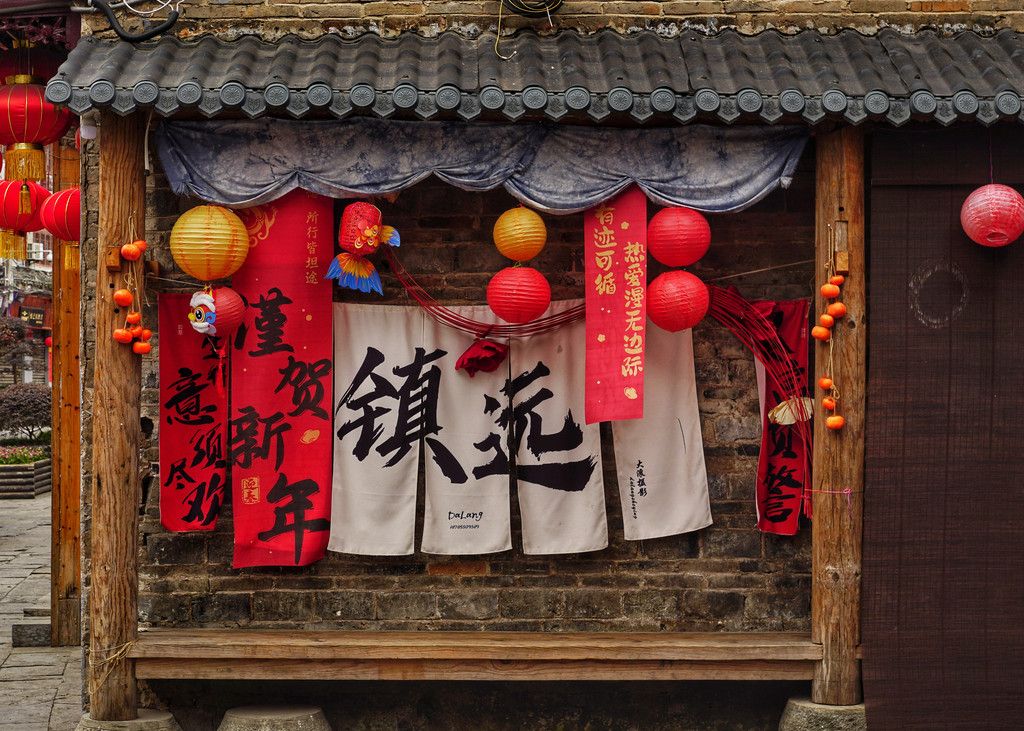 意须尽欢
所行皆坦途
谨贺新年
镇远
DaLang
大浪摄影
有迹可循
热爱漫无边际